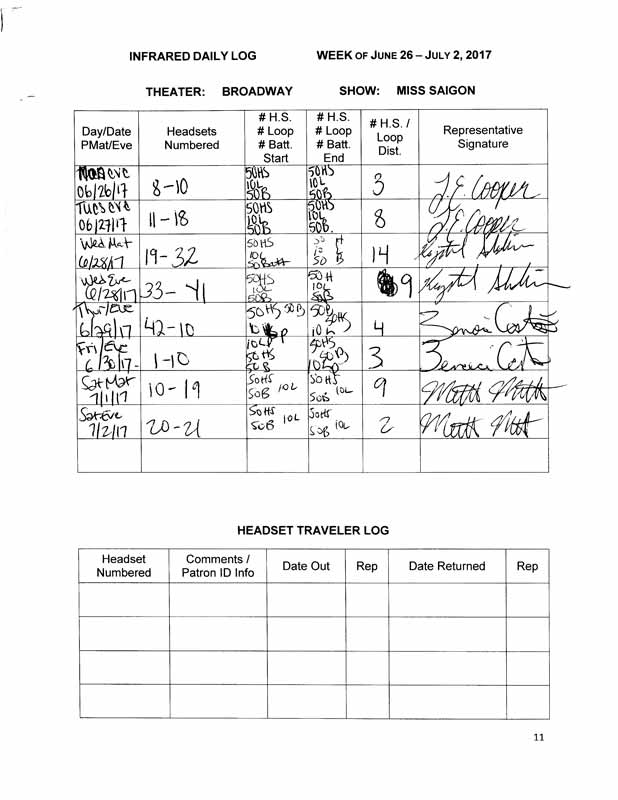 INFRARED DAILY LOG WEEK OF JUNE 26 – JULY 2, 2017
THEATER: BROADWAY SHOW: MISS SAIGON
Day/Date PMat/Eve Headsets Numbered # H.S. # Loop # Batt. Start # H.S. # Loop # Batt. End # H.S. / Loop Dist. Representative Signature
Mon eve 06/26/17 8-10 50HS 10L 50B 50HS 10L 50B 3 J.E. Cooper
Tues eve 06/27/17 11-18 50HS 10L 50B 50HS 10L 50B. 8 J.E. Cooper
Wed Mat 6/28/17 19-32 50HS 10L 50Batt 50 H 10 L 50 B 14 Krystal
Wed Eve 6/28/17 33-41 50HS 10L 50B 50H 10L 50B 9 Krystal
Thur/Eve 6/29/17 42-10 50HS 50B 10 Lp 50B 50HS 10L 4
Fri/Eve 6/30/17 1-10 10Lp 50HS 50B 50HS 50B 10Lp 3
Sat Mat 7/1/17 10-19 50HS 50B 10L 50HS 50B 10L 9 Matt
Sat Eve 7/2/17 20-21 50HS 50B 10L 50HS 50B 10L 2 Matt
HEADSET TRAVELER LOG
Headset Numbered Comments / Patron ID Info Date Out Rep Date Returned Rep
11